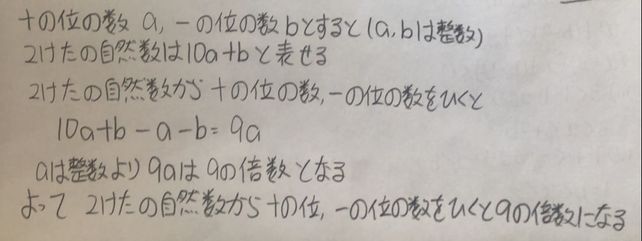 十の位の数 a, 一の位の数 bとすると(a, bは整数)
2けたの自然数は10a+bと表せる
2けたの自然数から十の位の数, 一の位の数をひくと
10a+b-a-b=9a
aは整数より9aは9の倍数となる
よって 2けたの自然数から十の位, 一の位の数をひくと9の倍数になる